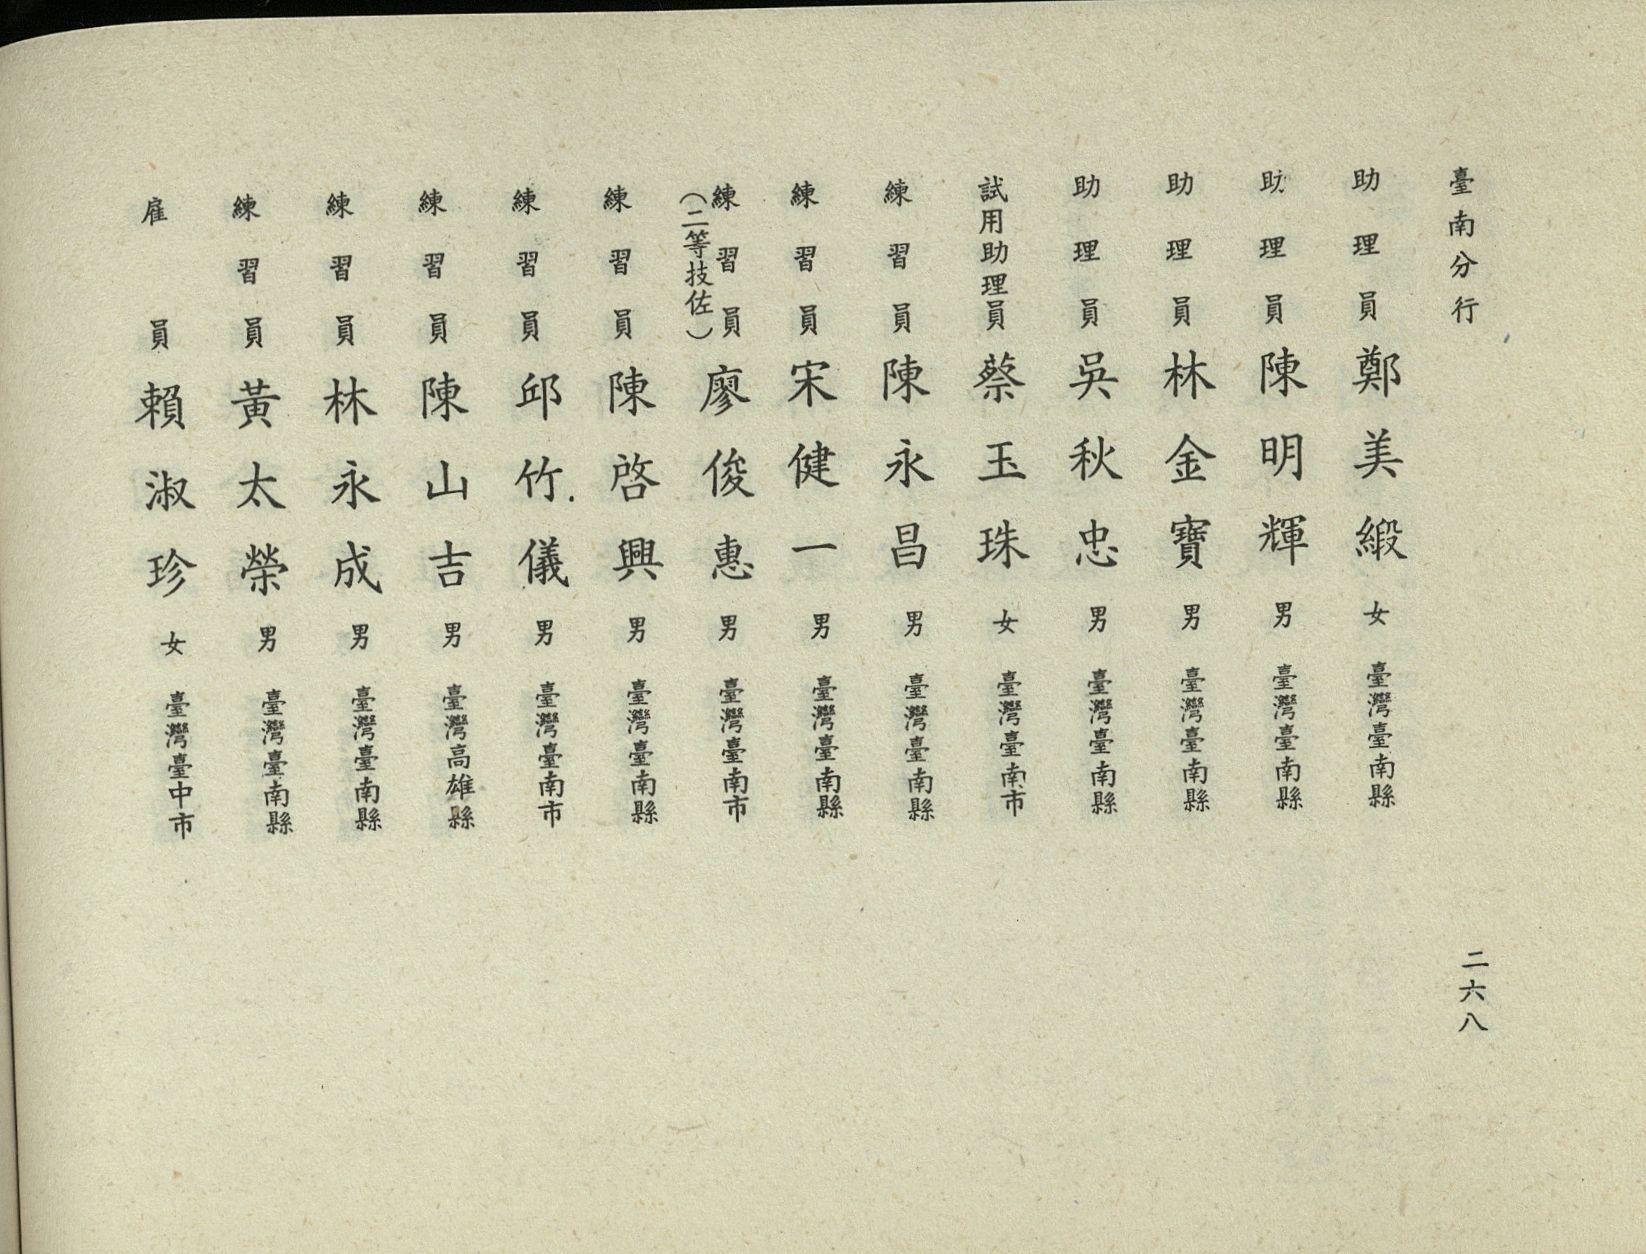 臺南分行
二六八
助理員 鄭美緞 女 臺灣臺南縣
助理員 陳明輝 男 臺灣臺南縣
助理員 林金寶 男 臺灣臺南縣
助理員 吳秋忠 男 臺灣臺南縣
試用助理員 蔡玉珠 女 臺灣臺南市
練習員 陳永昌 男 臺灣臺南縣
練習員 宋健一 男 臺灣臺南縣
練習員(二等技佐) 廖俊惠 男 臺灣臺南市
練習員 陳啓興 男 臺灣臺南縣
練習員 邱竹儀 男 臺灣臺南市
練習員 陳山吉 男 臺灣高雄縣
練習員 林永成 男 臺灣臺南縣
練習員 黃太榮 男 臺灣臺南縣
雇員 賴淑珍 女 臺灣臺中市